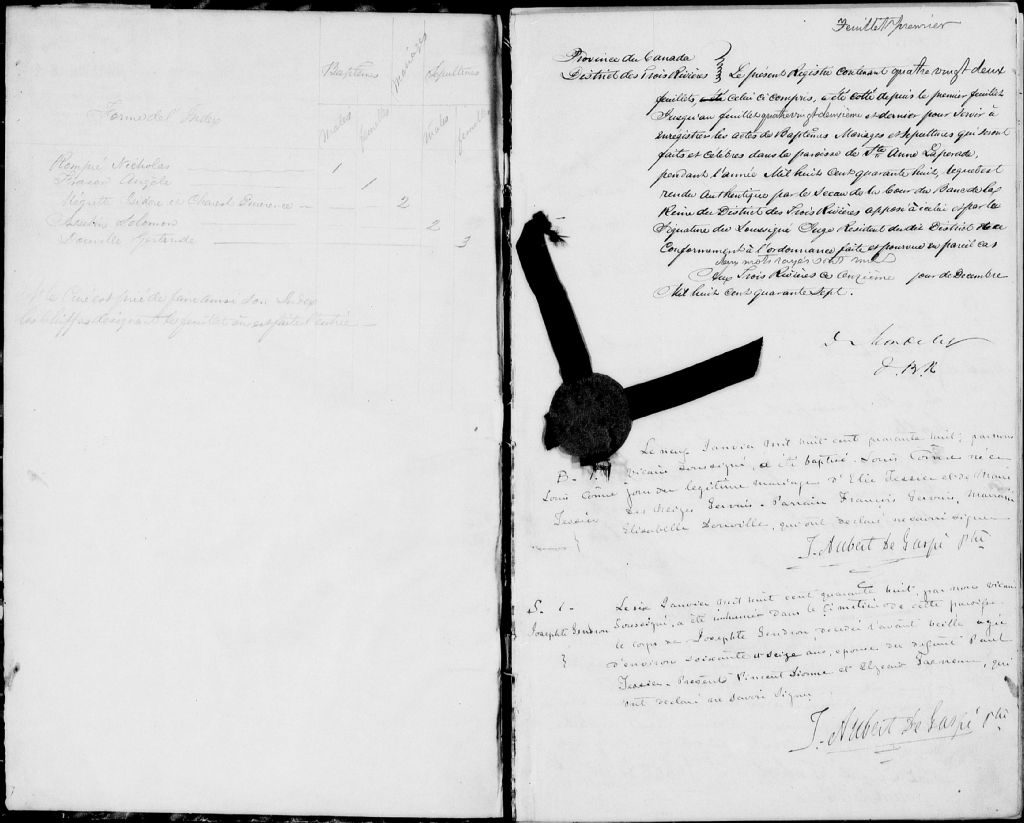 Baptêmes
Mariages
Sépultures
Males
femelles
Males
femelles
Forme de l'Index
Pompié Nicholas 1
Angèle 1
Isidore et Charest 2
Solomon 2
Gertrude 3
le Curé est prié de faire aussi son Index
les chiffres désignant le feuillet où est faite l'entrée
Feuillet premier
Province du Canada
District des Trois Rivières } Le présent Registre contenant quatre vingt deux
feuillets, celui ci compris, a été coté depuis le premier feuillet
jusqu'au feuillet quatre vingt deuxième et dernier pour servir à
enregistrer les actes de Baptêmes Mariages et Sépultures qui seront
faits et célébrés dans la paroisse de Ste Anne Laperade,
pendant l'année Mil huit Cent quarante huit, lequel est
rendu Authentique par le Sceau de la Cour du Banc de la
Reine du District des Trois Rivières apposé à icelui et par la
Signature du Soussigné Juge Résident du dit District
Conformément à l'ordonnance faite et pourvue en pareil cas
deux mots rayés sont nuls
Aux Trois Rivières ce onzième jour de Decembre
Mil huit cent quarante Sept.
Le neuf Janvier mil huit cent quarante huit, par nous
Vicaire soussigné, a été baptisé Louis Côme né ce
B. 1.
Louis Côme
Tessier
jour du légitime mariage d'Elie Tessier et de Marie
des Neiges Gervais. Parrain François Gervais, Marraine
Elisabelle Dorville, qui ont déclaré ne savoir signer
F. Aubert De Gaspé Ptre
S. 1.
Josephte Gendron
Le six Janvier mil huit cent quarante huit, par nous vicaire
soussigné, a été inhumé dans le Cimetière de cette paroisse
le corps de Josephte Gendron décédée l'avant veille agée
d'environ soixante et seize ans, épouse du défunt Paul
Tessier. Présent Vincent et Elzear qui
ont déclaré ne savoir signer
F. Aubert De Gaspé Ptre